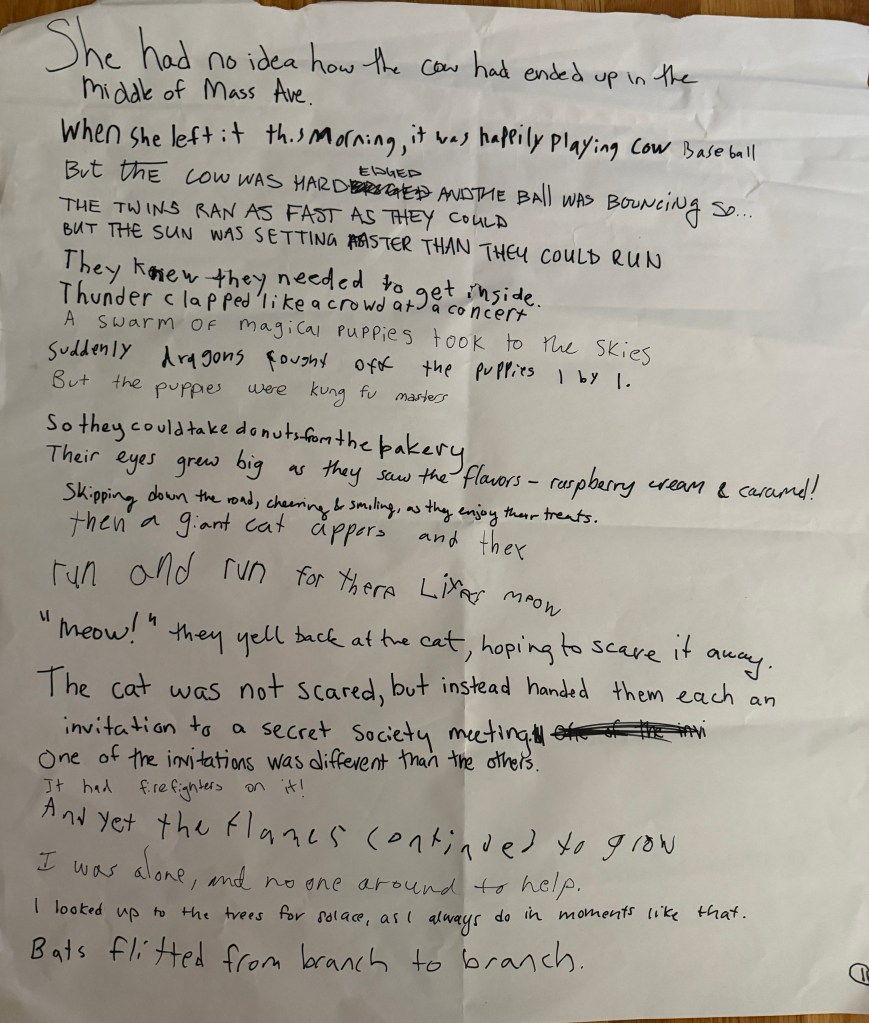 She had no idea how the cow had ended up in the
middle of Mass Ave.
When she left it this morning, it was happily playing cow Baseball
But THE COW WAS HARD EDGED AND THE BAll WAS BOUNCING SO...
THE TWINS RAN AS FAST AS THEY COULD
BUT THE SUN WAS SETTING FASTER THAN THEY COULD RUN
They knew they needed to get inside.
Thunder clapped like a crowd at a concert
A swarm of magical puppies took to the skies
Suddenly dragons fought off the puppies 1 by 1.
But the puppies were kung fu masters
So they could take donuts from the bakery
Their eyes grew big as they saw the flavors - raspberry cream & caramel!
Skipping down the road, cheering & smiling, as they enjoy their treats.
then a giant cat appers and they
run and run for there Lives meow
"Meow!" they yell back at the cat, hoping to scare it away.
The cat was not scared, but instead handed them each an
invitation to a secret society meeting. One of the invi
One of the invitations was different than the others.
It had firefighters on it!
And yet the flames continued to grow
I was alone, and no one around to help.
I looked up to the trees for solace, as I always do in moments like that.
Bats flitted from branch to branch.